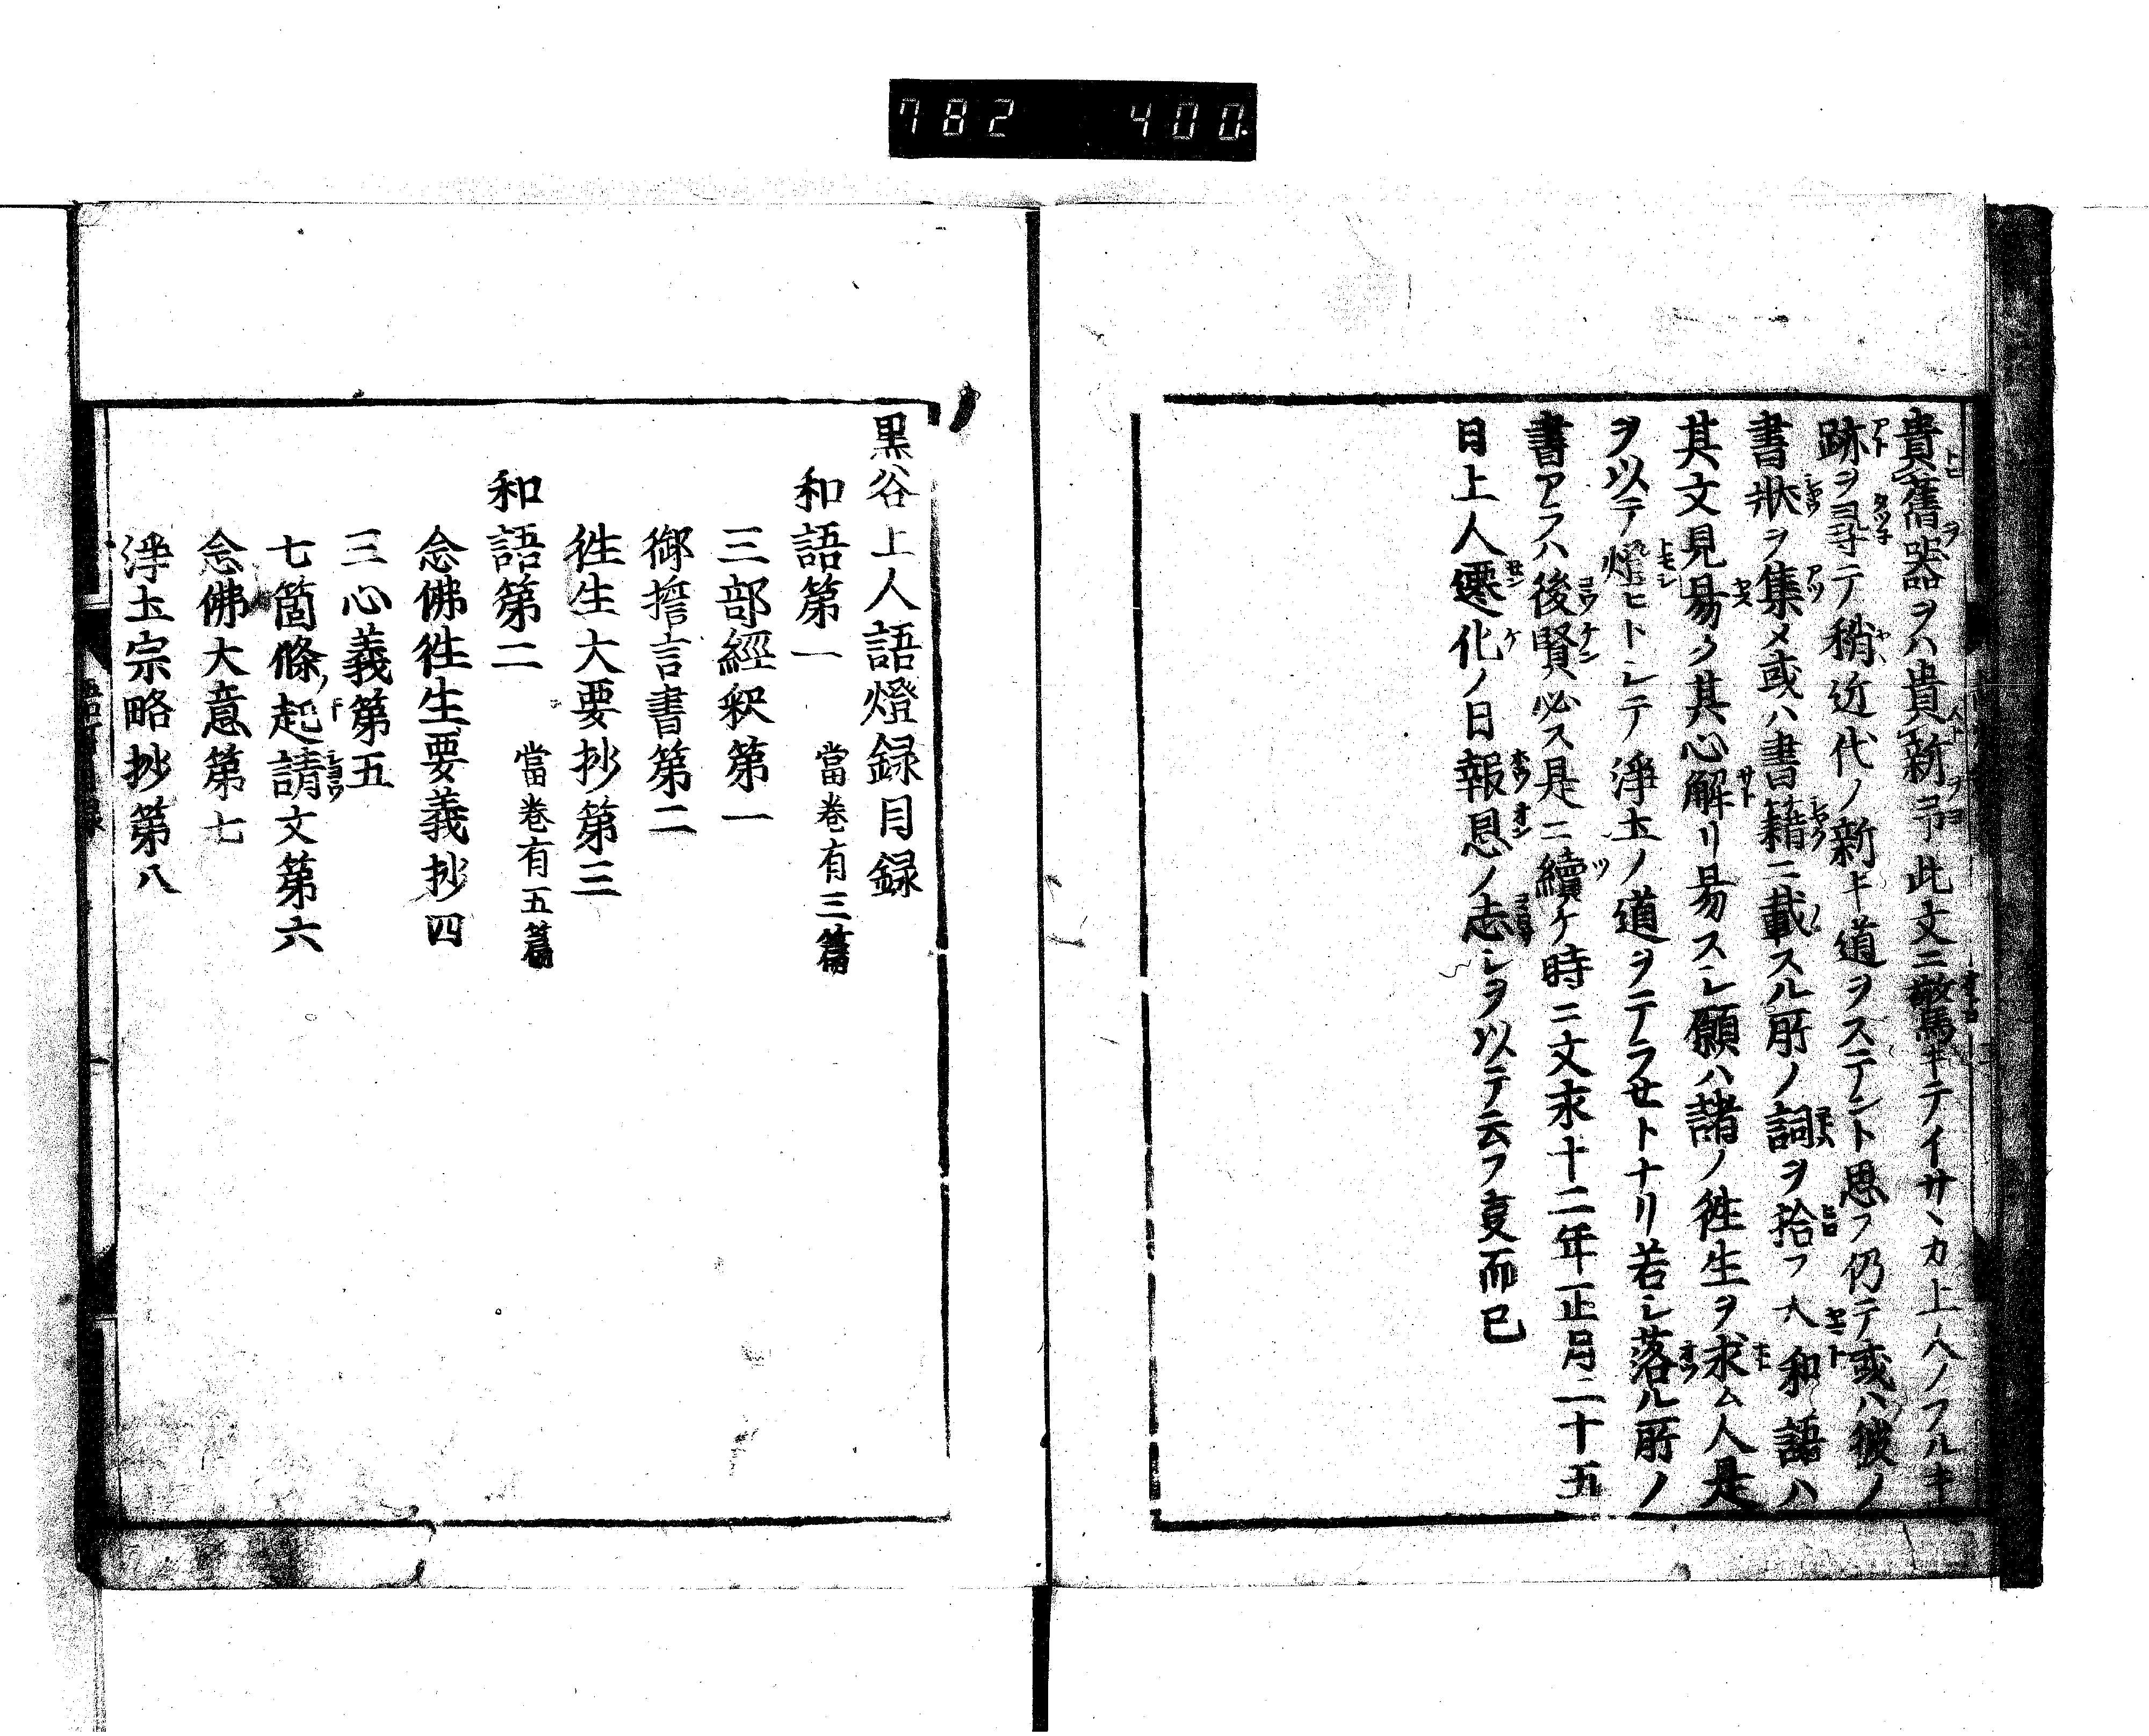 782 400
貴舊器ヲハ貴新予此文ニ驚キテイサヽカ上人ノフルキ
跡ヲ尋テ稍近代ノ新キ道ヲステント思フ仍テ或ハ彼ノ
書狀ヲ集メ或ハ書籍ニ載スル所ノ詞ヲ拾フ大和語ハ
其文見易ク其心解リ易スシ願ハ諸ノ徃生ヲ求ム人是
ヲ以テ燈ヒトシテ淨土ノ道ヲテラセトナリ若シ落ル所ノ
書アラハ後賢必ス是ニ續ケ時ニ文永十二年正月二十五
日上人遷化ノ日報恩ノ志シヲ以テ云フ㕝而已
黒谷上人語燈録目録
和語第一 當卷有三篇
三部經釈第一
御誓言書第二
徃生大要抄第三
和語第二 當卷有五篇
念佛徃生要義抄四
三心義第五
七箇條ノ起請文第六
念佛大意第七
淨土宗略抄第八